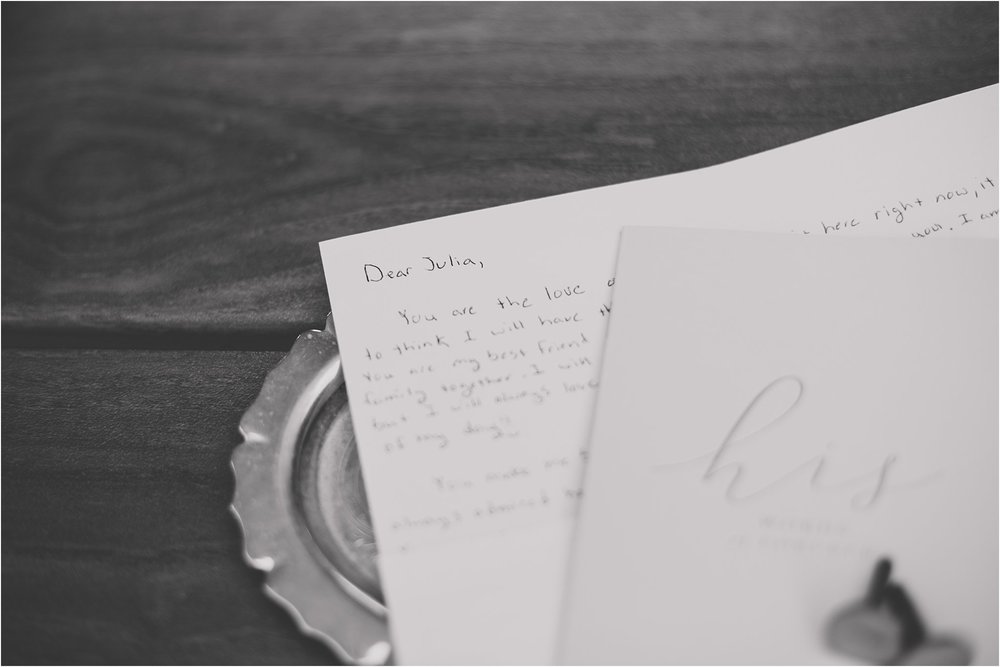 Dear Julia,
You are the love
to think I will have
You are my best friend
family together. I will
but I will always love
of my days.
You made me
always
here right now, it
you. I am
his